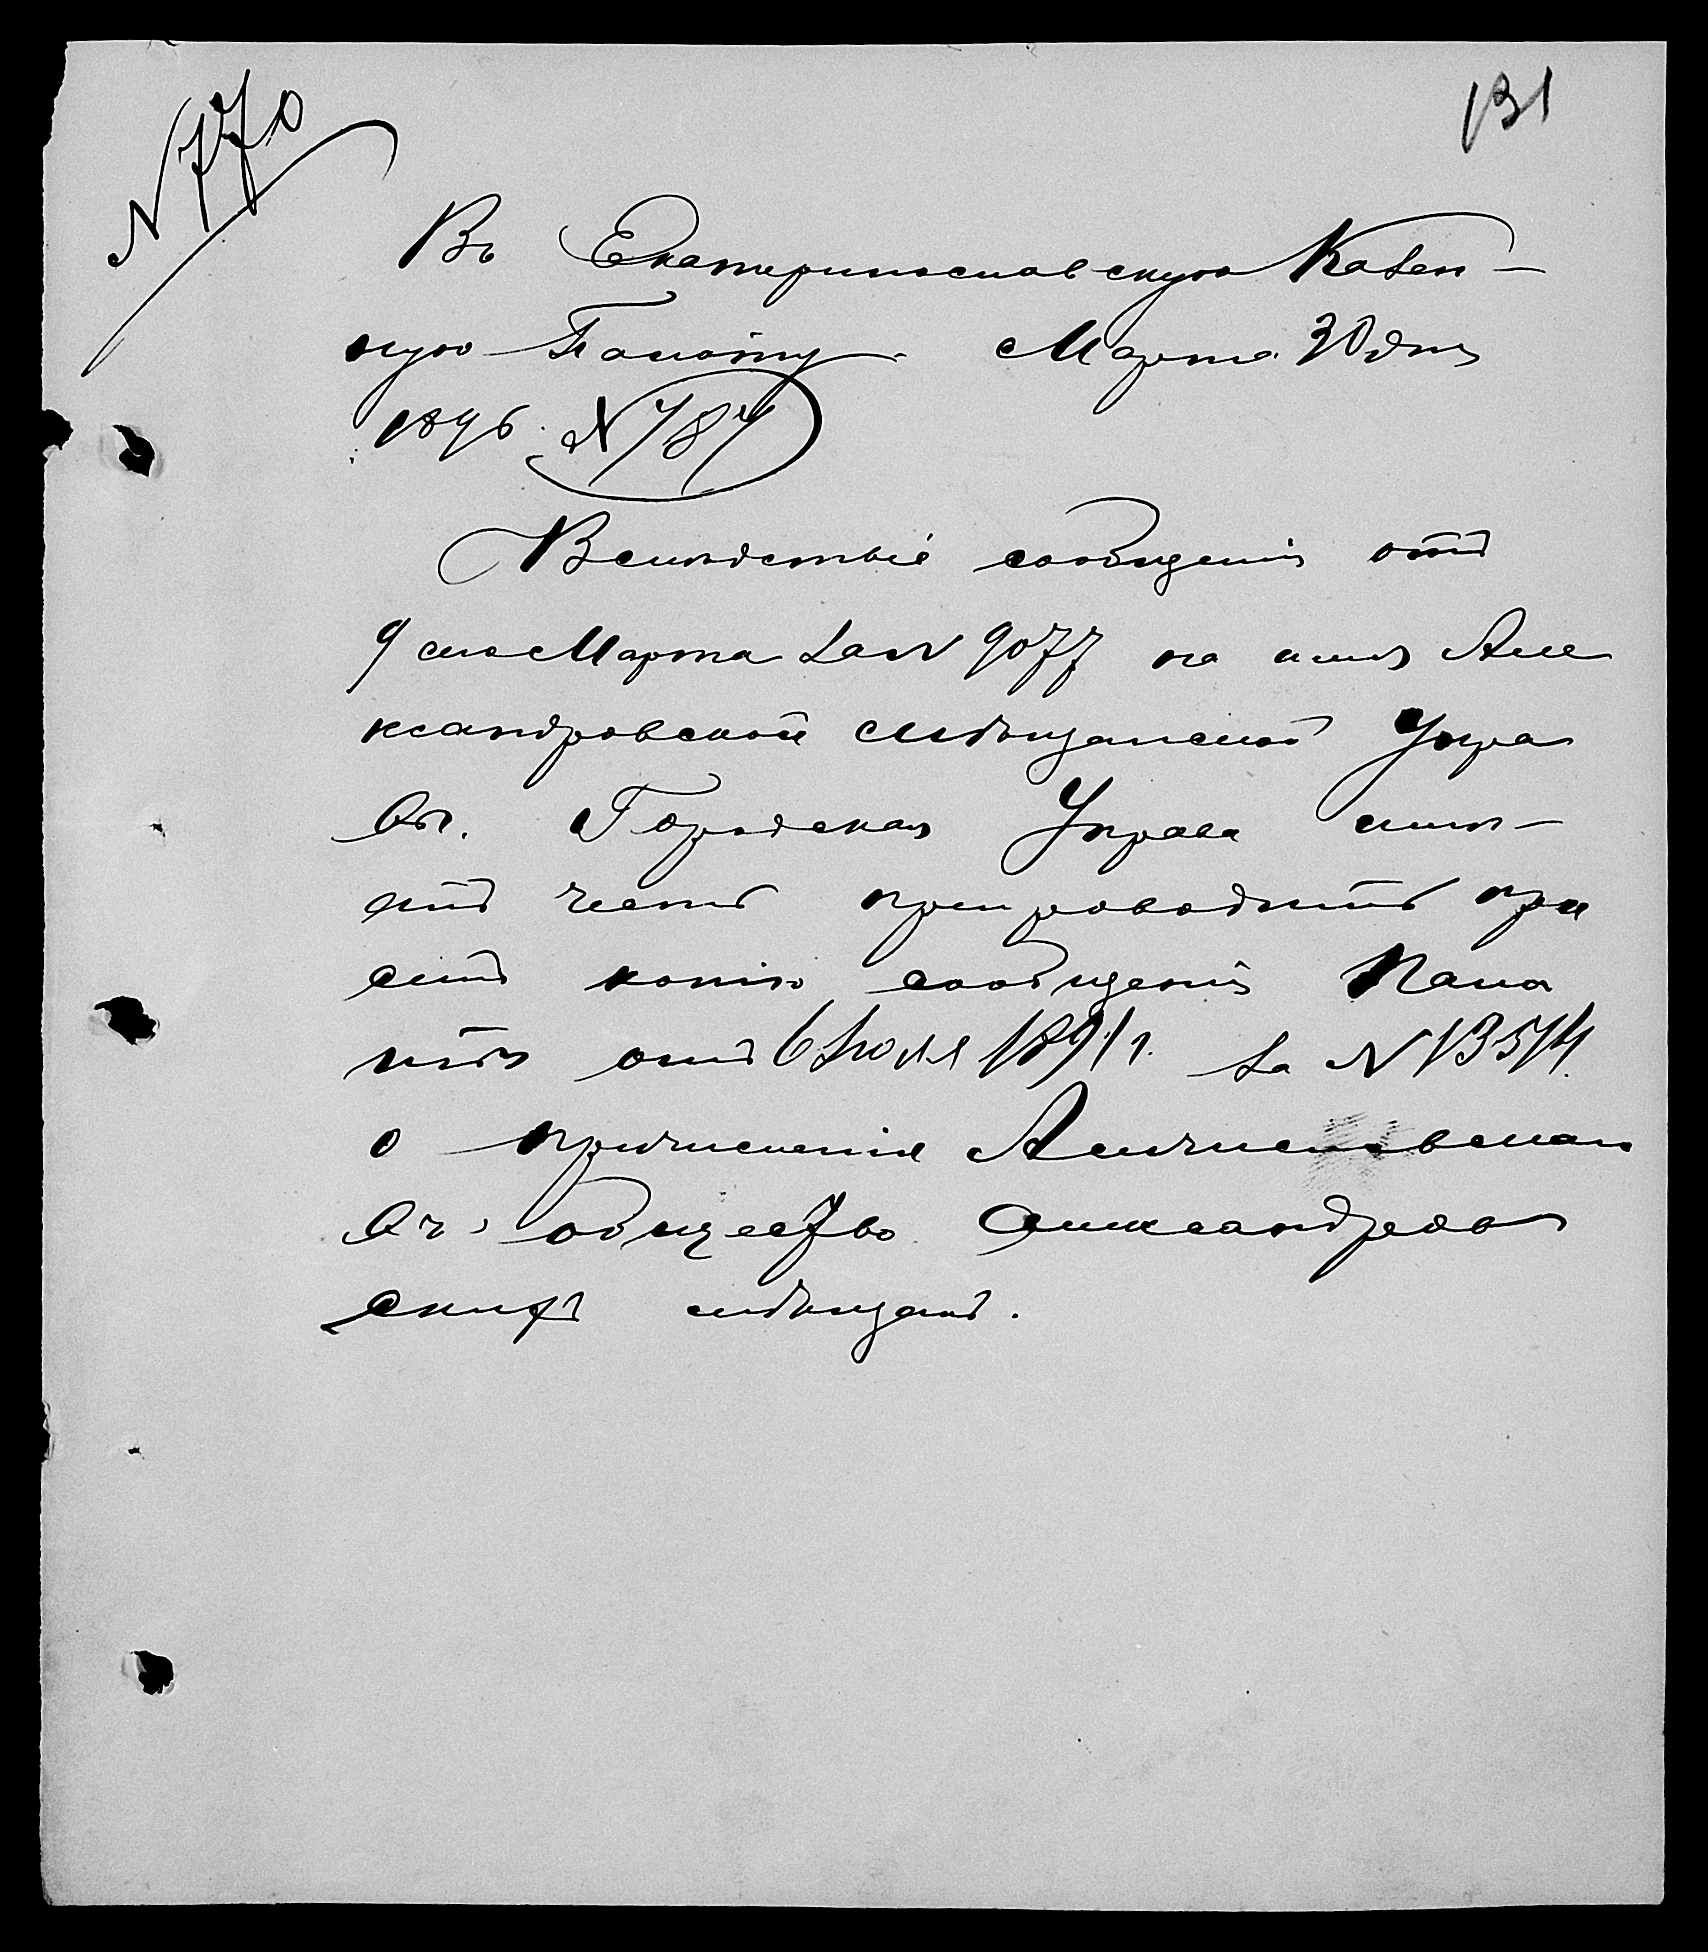 N 770
131
Въ Екатеринославскую Казен-
ную Палату. Марта 30 дня
1896. N 787
Вслѣдствіе сообщенія отъ
9 сего Марта за N 9077 на имя Але
ксандровской Мѣщанской Упра
вы. Городская Управа имѣ-
етъ честь препроводить при
семъ копію сообщенія Пала
ты отъ 6 Іюля 1891 г. за N 13514
о причисленіи
въ общество Александров
скихъ мѣщанъ.